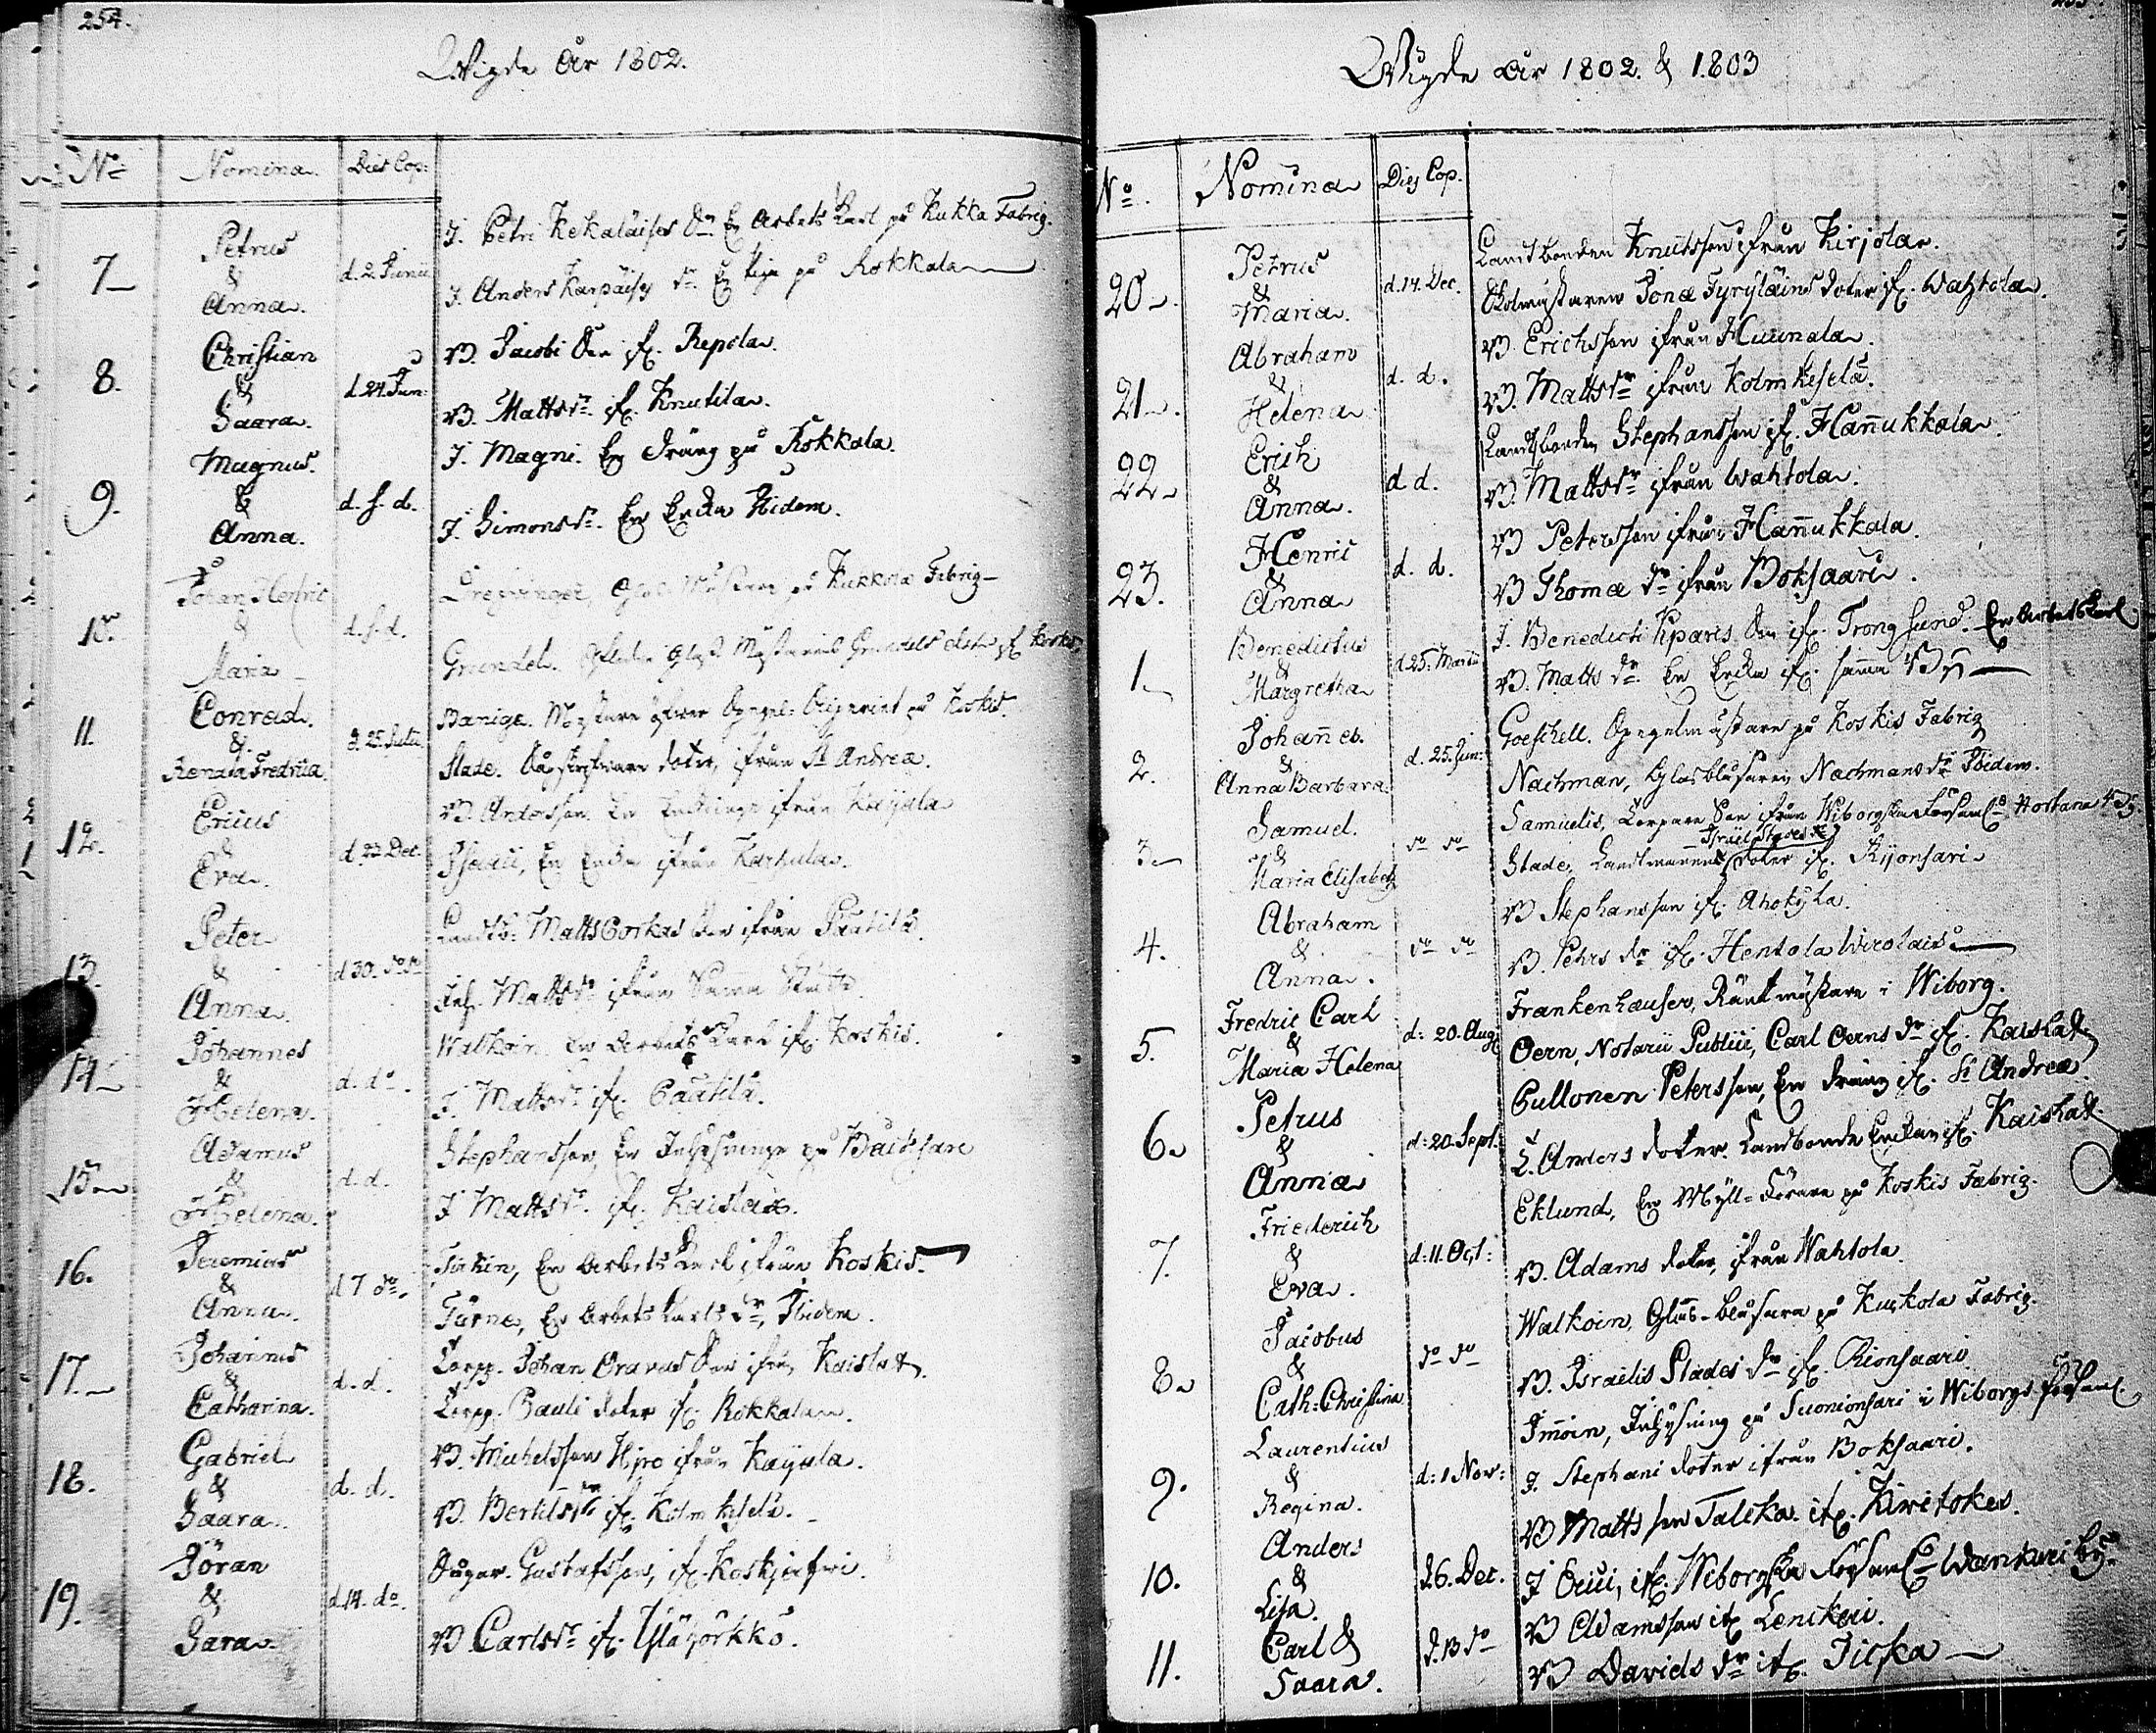 254.
Wigde År 1802.
No Nomina. Dies Cop:
7 Petrus & Anna. d. 2 Junii
J. Petri Kekaläises Sn En Arbets Karl på Kukka Fabriq.
J. Anders Karpäises dr En Piga på Rokkala
8. Christian & Saara. d. 24. Jun:
B. Jacobi Son if. Repola.
B. Matts dr if. Knutila.
9. Magnus. & Anna. d. s. d.
J. Magni. En Dräng på Rokkala.
J. Simons dr. En Enka Ibidem.
10. Johan Henric & Maria d. s. d.
Glas på Kukkola Fabriq
Grundel. Glas Mästarens Grundels doter if. Koskis
11. Conrad. & Renata Fredrica. d. 25. Julii.
Banige. Mästare öfver Spegel-Sliperiet på Koskis.
Slade. doter, ifrån St Andreæ.
12. Ericus & Eva. d. 22 Dec.
B. Andersson En Enklinge ifrån Kaÿala
Isacii, En Enka ifrån Karhula.
13. Peter & Anna. d 30. do do
Landtb: Matts Corkas Son ifrån Pautila.
Inh. Matts dr ifrån Samma
14 Johannes & Helena. d. do.
Walkoin. En Arbets Karl if. Koskis.
J. Matts dr if. Pautila.
15 Adamus & Helena. d. d.
Stephansson, En Inhysinge på Baiksare
J Matts dr. if. Kaislax.
16. Jeremias & Anna. d 7 do.
Tirkin, En Arbets Karl ifrån Koskis.
Törne, En Arbets Karls dr, Ibidem.
17. Johannes & Catharina. d. d.
Torpp. Johan Oravas Son ifrån Kaislax.
Torpp. Pauli doter if. Rokkala.
18. Gabriel & Saara. d. d.
B. Michelsson Hijro ifrån Kaÿala.
B. Bertils dr if. Kolmkeselä.
19. Jöran & Sara. d. 14. do.
Sågar. Gustafsson, if. Koskijerfwi.
B Carls dr if. Yläsörkkö.
Wigde År 1802. & 1803
No. Nomina Dies Cop.
20. Petrus & Maria. d. 14. Dec.
Landbonden Knutsson ifrån Kirjola.
Jonæ Tyryläins doter if. Wahtola.
21. Abraham & Helena d. d.
B. Erichsson ifrån Huunala.
B. Matts dr ifrån Kolmkeselä.
22 Erich & Anna. d d.
Landtbonden Stephansson if. Hañukkala.
B. Matts dr ifrån Wahtola.
23. Henric & Anna d. d.
B Petersson ifrån Hañukkala.
B Thomæ dr ifrån Boksaari.
1. Benedictus & Margretha d. 25. Martii
J. Benedicti Kparis Son if. Trongsund. En Arbets Karl.
B. Matts dr En Enka if. sama By
2. Johañes. & Anna Barbara. d. 25. Jun:
Goeschell. Spegelmästare på Koskis Fabriq
Nachman, Glasblåsaren Nachmans dr Ibidem.
3. Samuel. & Maria Elisabeth do do
Samuelis, Torpare Son ifrån Wiborgska Församl: Horkana By.
Israel Slades dr
Slade, Landtmannens doter if. Rijonsari
4. Abraham & Anna. do do
B Stephansson if. Ahokÿla.
B. Pehrs dr if. Hentola Wirolais
5. Fredric Carl & Maria Helena d: 20. Aug:
Frankenhæuser, Räntmästare i Wiborg.
Oern, Notarii Publici, Carl Oerns dr if. Kaislax
6. Petrus & Anna d: 20. Sept:
Pullonen Petersson, En dräng if. St Andreæ.
L. Anders doter. Landbonde Enkan if. Kaislax.
7. Friederich & Eva. d: 11. Oct:
Eklund, En Myll-Körare på Koskis Fabriq.
B. Adams doter, ifrån Wahtola.
8. Jacobus & Cath: Christina do do
Walkoin, Glas-blåsare på Kuckola Fabriq.
B. Israelis Slades dr if. Rionsaari
9. Laurentius & Regina. d: 1 Nov:
Immoin, Inhysing på Suonionsari i Wiborgs Församl.
J. Stephani doter ifrån Boksaari.
10. Anders & Lisa. d. 6. Dec.
B Matts son Talika. if. Kiwitokes.
J Erici, if. Wiborgska Församl: Wankuri by.
11. Carl & Saara. d. 13 do
B Adamsson if Lenikeri.
B Davids dr if. Jilska